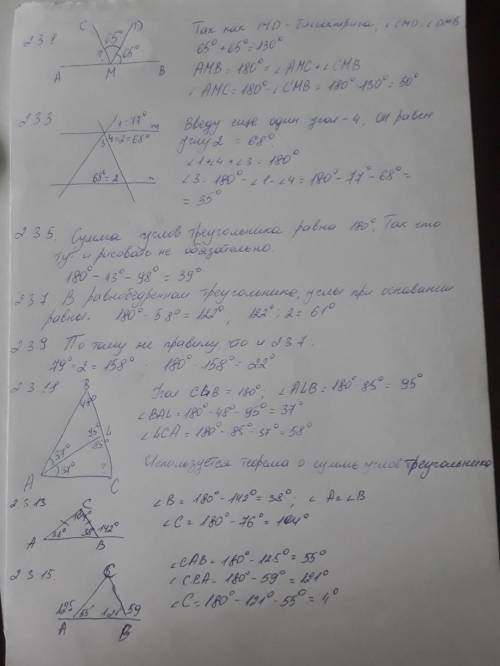 C D
65°
2 3 1
? 65°
A M B
Так как MD - биссектриса, ∠CMD = ∠DMB
65° + 65° = 130°
AMB = 180° = ∠AMC + ∠CMB
∠AMC = 180° - ∠CMB = 180° - 130° = 50°
2 3 3
1 = 77°
3 4 = 2 = 68° m
68° = 2 n
Введу еще один угол - 4, он равен
углу 2 = 68°
∠1 + 4 + ∠3 = 180°
∠3 = 180° - ∠1 - ∠4 = 180° - 77° - 68° =
= 35°
2 3 5. Сумма углов треугольника равна 180°. Так что
тут и рисовать не обязательно.
180° - 43° - 98° = 39°
2 3 7 В равнобедренном треугольнике, углы при основании
равны. 180° - 58° = 122°, 122° : 2 = 61°
2 3 9 По тому же правилу, что и 2 3 7.
79° · 2 = 158° 180° - 158° = 22°
B
48°
95° L
37° 85°
37° ?
A C
Угол CLB = 180°, ∠ALB = 180° - 85° = 95°
∠BAL = 180° - 48° - 95° = 37°
∠LCA = 180° - 85° - 37° = 58°
Используется теорема о сумме углов треугольника
2 3. 13
C
142°
A B
∠B = 180° - 142° = 38°; ∠A = ∠B
∠C = 180° - 76° = 104°
2 3 15.
C
125 55° 121° 59
A B
∠CAB = 180° - 125° = 55°
∠CBA = 180° - 59° = 121°
∠C = 180° - 121° - 55° = 4°